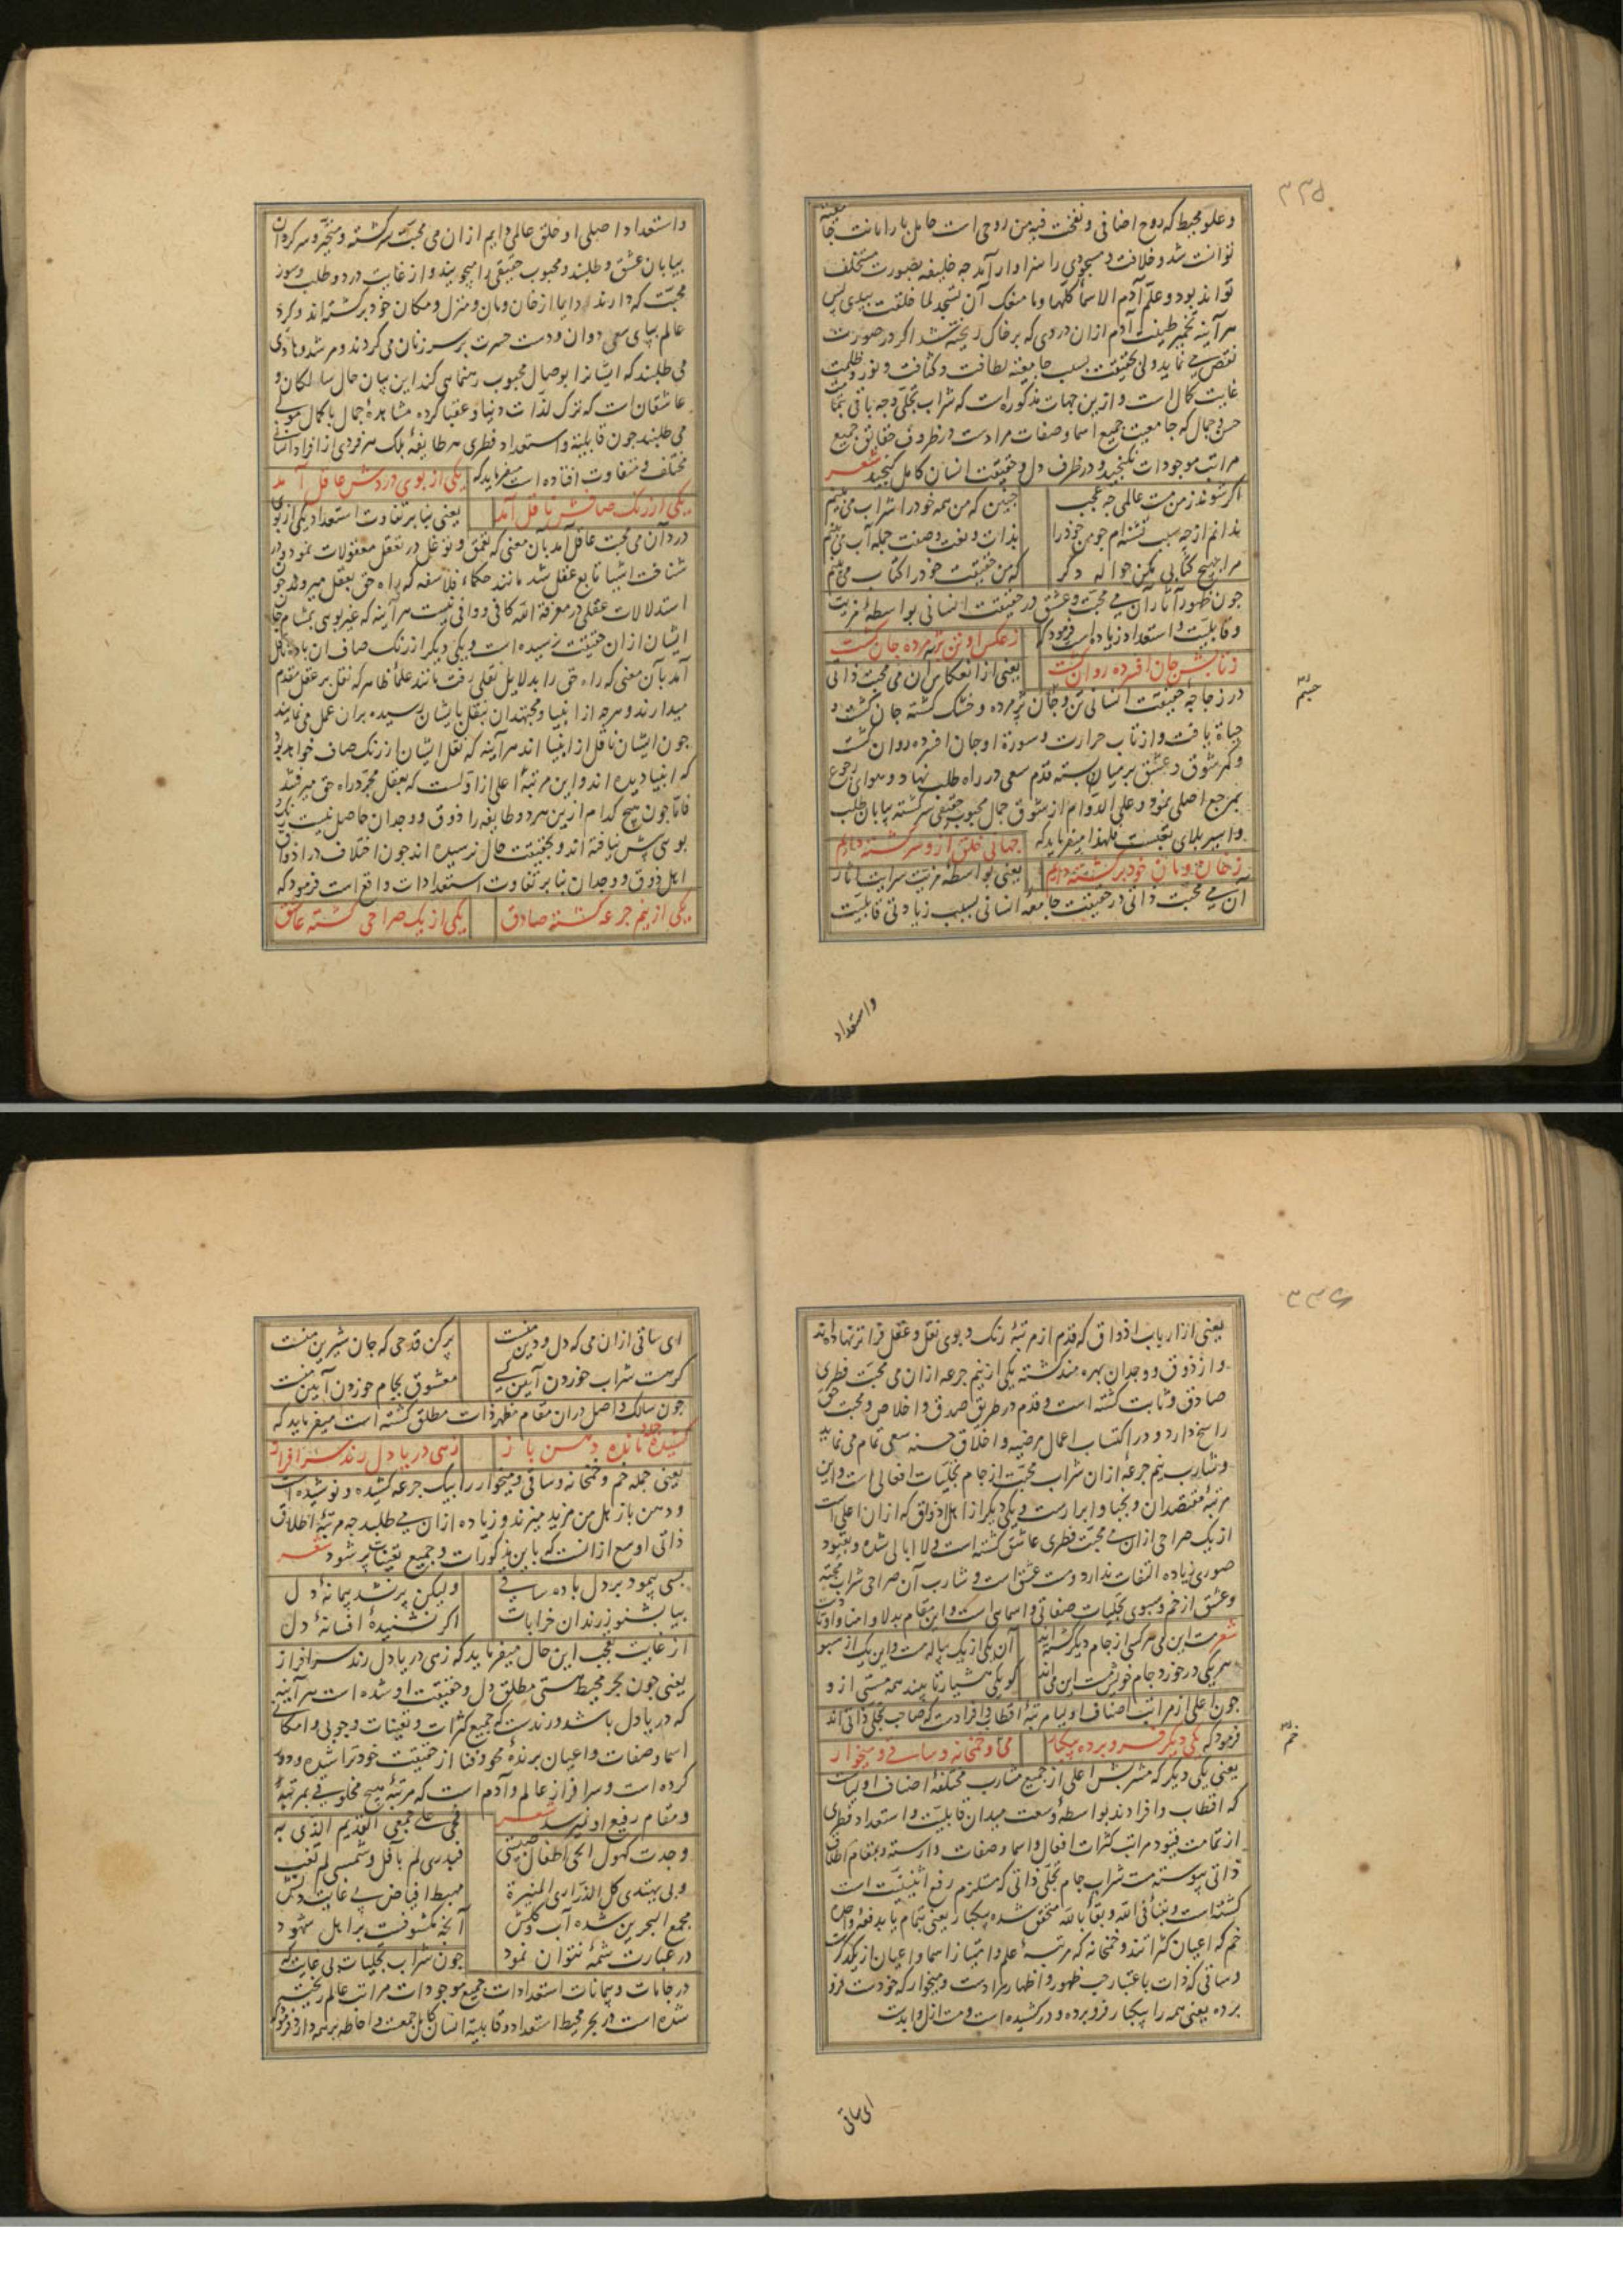 ۳۳۵
وعلو محیط که روح اضافی ونفخت فیه من روحی است حامل بار امانت
توانست شد وخلافت و مسجودی را سزاوار آمد چه خلیفه بصورت مستخلف
تواند بود وعلم آدم الاسما کلها وما منعک ان تسجد لما خلقت بیدی پس
هر آینه تخمیر طینت آدم ازان دردی که بر خاک ریخته شد اگر در صورت
نقص می نماید ولی بحقیقت بسبب جامعیت لطافت وکثافت ونور وظلمت
غایت کمال است وازین جهات مذکوره است که شراب تجلی وجه باقی
حسن وجمال که جامعیت جمیع اسما وصفات مرادست در ظروف حقایق جمیع
مراتب موجودات نگنجید ودر ظرف دل وحقیقت انسان کامل گنجید شعر
اگر شوند ز من مست عالمی چه عجب چنین که من همه خود را شراب می بینم
ندانم از چه سبب تشنه ام چو من خود را بذات ونعت وصفت جمله آب می بینم
مرا بهیچ کتابی مکن حواله دگر که من حقیقت خود را کتاب می بینم
چون ظهور آثار آن می محبت وعشق در حقیقت انسانی بواسطه مزیت
وقابلیت واستعداد زیاد است فرمود که ز عکس او تن پژمرده جان گشت
ز تابش جان افسرده روان گشت یعنی از انعکاس آن می محبت ذاتی
در زجاجه حقیقت انسانی تن وجان پژمرده وخشک گشته جان گشت و
حیاة یافت واز تاب حرارت وسورة او جان افسرده روان گشت
وکمر شوق وعشق بر میان بسته قدم سعی در راه طلب نهاد وهوای رجوع
بمرجع اصلی نمود وعلی الدوام از شوق جمال محبوب حقیقی سرگشته بیابان طلب
واسیر بلای تعبست فلهذا میفرماید که جهانی خلق ازو سرگشته دایم
ز خان ومان خود برگشته دایم یعنی بواسطه مزیت سرایت آثار
آن می محبت ذاتی در حقیقت جامعه انسانی بسبب زیادتی قابلیت
واستعداد
واستعداد اصلی او خلق عالمی دایم ازان می محبت سرگشته ومتحیر وسرگردان
بیابان عشق وطلبند ومحبوب حقیقی را میجویند واز غایت درد وطلب وسوز
محبت که دارند دایما از خان ومان ومنزل ومکان خود برگشته اند وگرد
عالم بپای سعی دوان ودست حسرت بر سر زنان می گردند ومرشد وهادی
می طلبند که ایشانرا بوصال محبوب رهنمایی کند این بیان حال سالکان و
عاشقان است که ترک لذات دنیا وعقبا کرده مشاهده جمال باکمال مولی
می طلبند چون قابلیة واستعداد فطری هر طایفه بلک هر فردی از افراد انسانی
مختلف ومتفاوت افتاده است میفرماید که یکی از بوی دردش عاقل آمد
یکی از رنک صافش ناقل آمد یعنی بنا بر تفاوت استعداد یکی از بوی
درد آن می محبت عاقل آمد بآن معنی که تعمق وتوغل در تعقل معقولات نمود ودر
شناخت اشیا تابع عقل شد مانند حکماء فلاسفه که براه حق بعقل میروند چو
استدلالات عقلی در معرفة الله کافی ووافی نیست هر آینه که غیر بویی بمشام
ایشان ازان حقیقت نرسیده است ویکی دیگر از رنک صاف ان باده ناقل
آمد بآن معنی که راه حق را بدلایل نقلی رفت مانند علماء ظاهر که نقل بر عقل مقدم
میدارند وهرچه از انبیا ومجتهدان بنقل بایشان رسیده بران عمل می نمایند
چون ایشان ناقل از انبیا اند هر آینه که نقل ایشان از رنک صاف خواهد بود
که انبیا دیده اند واین مرتبه اعلی از اولست که بعقل مجرد راه حق میرفتند
فاما چون هیچ کدام ازین هر دو طایفه را ذوق ووجدان حاصل نیست رنک و
بویی بیش نیافته اند وبحقیقت حال نرسیده اند چون اختلاف در اذواق
اهل ذوق ووجدان بنا بر تفاوت استعدادات واقع است فرمود که
یکی از نیم جرعه گشته صادق یکی از یک صراحی گشته عاشق
۳۳۶
یعنی از ارباب اذواق که قدم از مرتبه رنک وبوی نقل وعقل فراتر نهاده اند
واز ذوق ووجدان بهره مند گشته یکی از نیم جرعه ازان می محبت فطری
صادق وثابت گشته است وقدم در طریق صدق واخلاص ومحبت حق
راسخ دارد ودر اکتساب اعمال مرضیه واخلاق حسنه سعی تمام می نماید
وشارب نیم جرعه ازان شراب محبت از جام تجلیات افعالی است واین
مرتبه مقتصدان ونجبا وابرارست ویکی دیگر از اهل ذوق که ازان اعلی است
از یک صراحی ازان می محبت فطری عاشق گشته است ولاابالی شده وبقیود
صوری زیاده التفات ندارد ومست عشق است وشارب آن صراحی شراب محبة
وعشق از خم وسبوی تجلیات صفاتی واسمائی است واین مقام بدلا وامنا واوتاد است
شعر مست این می هر کسی از جام دیگر گشته اند آن یکی از یک پیاله مست واین یک از سبو
هر یکی در خورد جام خویش مست این می اند کو یکی هشیار تا بیند همه مستی ازو
چون اعلی از مراتب اصناف اولیا مرتبه اقطاب وافرادست که صاحب تجلی ذاتی اند
فرمود که یکی دیگر فرو برده بیکبار می وخمخانه وساقی ومیخوار
خم
یعنی یکی دیگر که مشربش اعلی از جمیع مشارب مختلفه اصناف اولیاست
که اقطاب وافرادند بواسطه وسعت میدان قابلیت واستعداد فطری
از تمامت قیود مراتب کثرات افعال واسما وصفات وارسته وبمقام اطلاق
ذاتی پیوسته مست شراب جام تجلی ذاتی که مستلزم رفع اثنینیت است
گشته است وبفنا فی الله وبقا بالله متحقق شده بیکبار یعنی بتمام یا بدفعه واحده
خم که اعیان کثراتند وخمخانه که مرتبه علم وامتیاز اسما واعیان از یکدگر
وساقی که ذات باعتبار حب ظهور واظهار مرادست ومیخوار که خودست فرو
برده یعنی همه را بیکبار فرو برده ودر کشیده است ومست ازل وابدست
ای ساقی
ای ساقی ازان می که دل ودین منست پر کن قدحی که جان شیرین منست
گر هست شراب خوردن آیین کسی معشوق بجام خوردن آیین منست
چون سالک واصل دران مقام مظهر ذات مطلق گشته است میفرماید که
کشیده جمله ومانده دهن باز زهی دریا دل رند سرافراز
یعنی جمله خم وخمخانه وساقی ومیخوار را بیک جرعه کشیده ونوشیده است
ودهن باز هل من مزید میزند وزیاده ازان می طلبد چه مرتبه اطلاق
ذاتی اوسع ازانست که باین مذکورات وجمیع تعینات پر شود شعر
بسی پیمود بر دل باده ساقی ولیکن پر نشد پیمانه دل
بیا بشنو ز رندان خرابات اگر نشنیده افسانه دل
از غایت تعجب این حال میفرماید که زهی دریا دل رند سرافراز
یعنی چون بحر محیط هستی مطلق دل وحقیقت او شده است هر آینه
که دریا دل باشد ورندست که جمیع کثرات وتعینات وجوبی وامکانی
اسما وصفات واعیان برنده محو وفنا از حقیقت خود تراشیده ودور
کرده است وسرافراز عالم وآدم است که مرتبه هیچ مخلوقی بمرتبه
ومقام رفیع او نمیرسد شعر فمن علی جمعی القدیم الذی به
وجدت کهول الحی اطفال صبیتی فبدری لم یافل وشمسی لم تغب
وبی یهتدی کل الدراری المنیرة مهبط افیاض بی غایت دلش
مجمع البحرین شده آب وگلش آنچه مکشوفست بر اهل شهود
در عبارت شمه نتوان نمود چون شراب تجلیات بی غایت که
در جامات وپیمانات استعدادات جمیع موجودات مراتب عالم ریخته
شده است در بحر محیط استعداد وقابلیة انسان کامل جمعست واحاطه بر همه دارد فرمود که